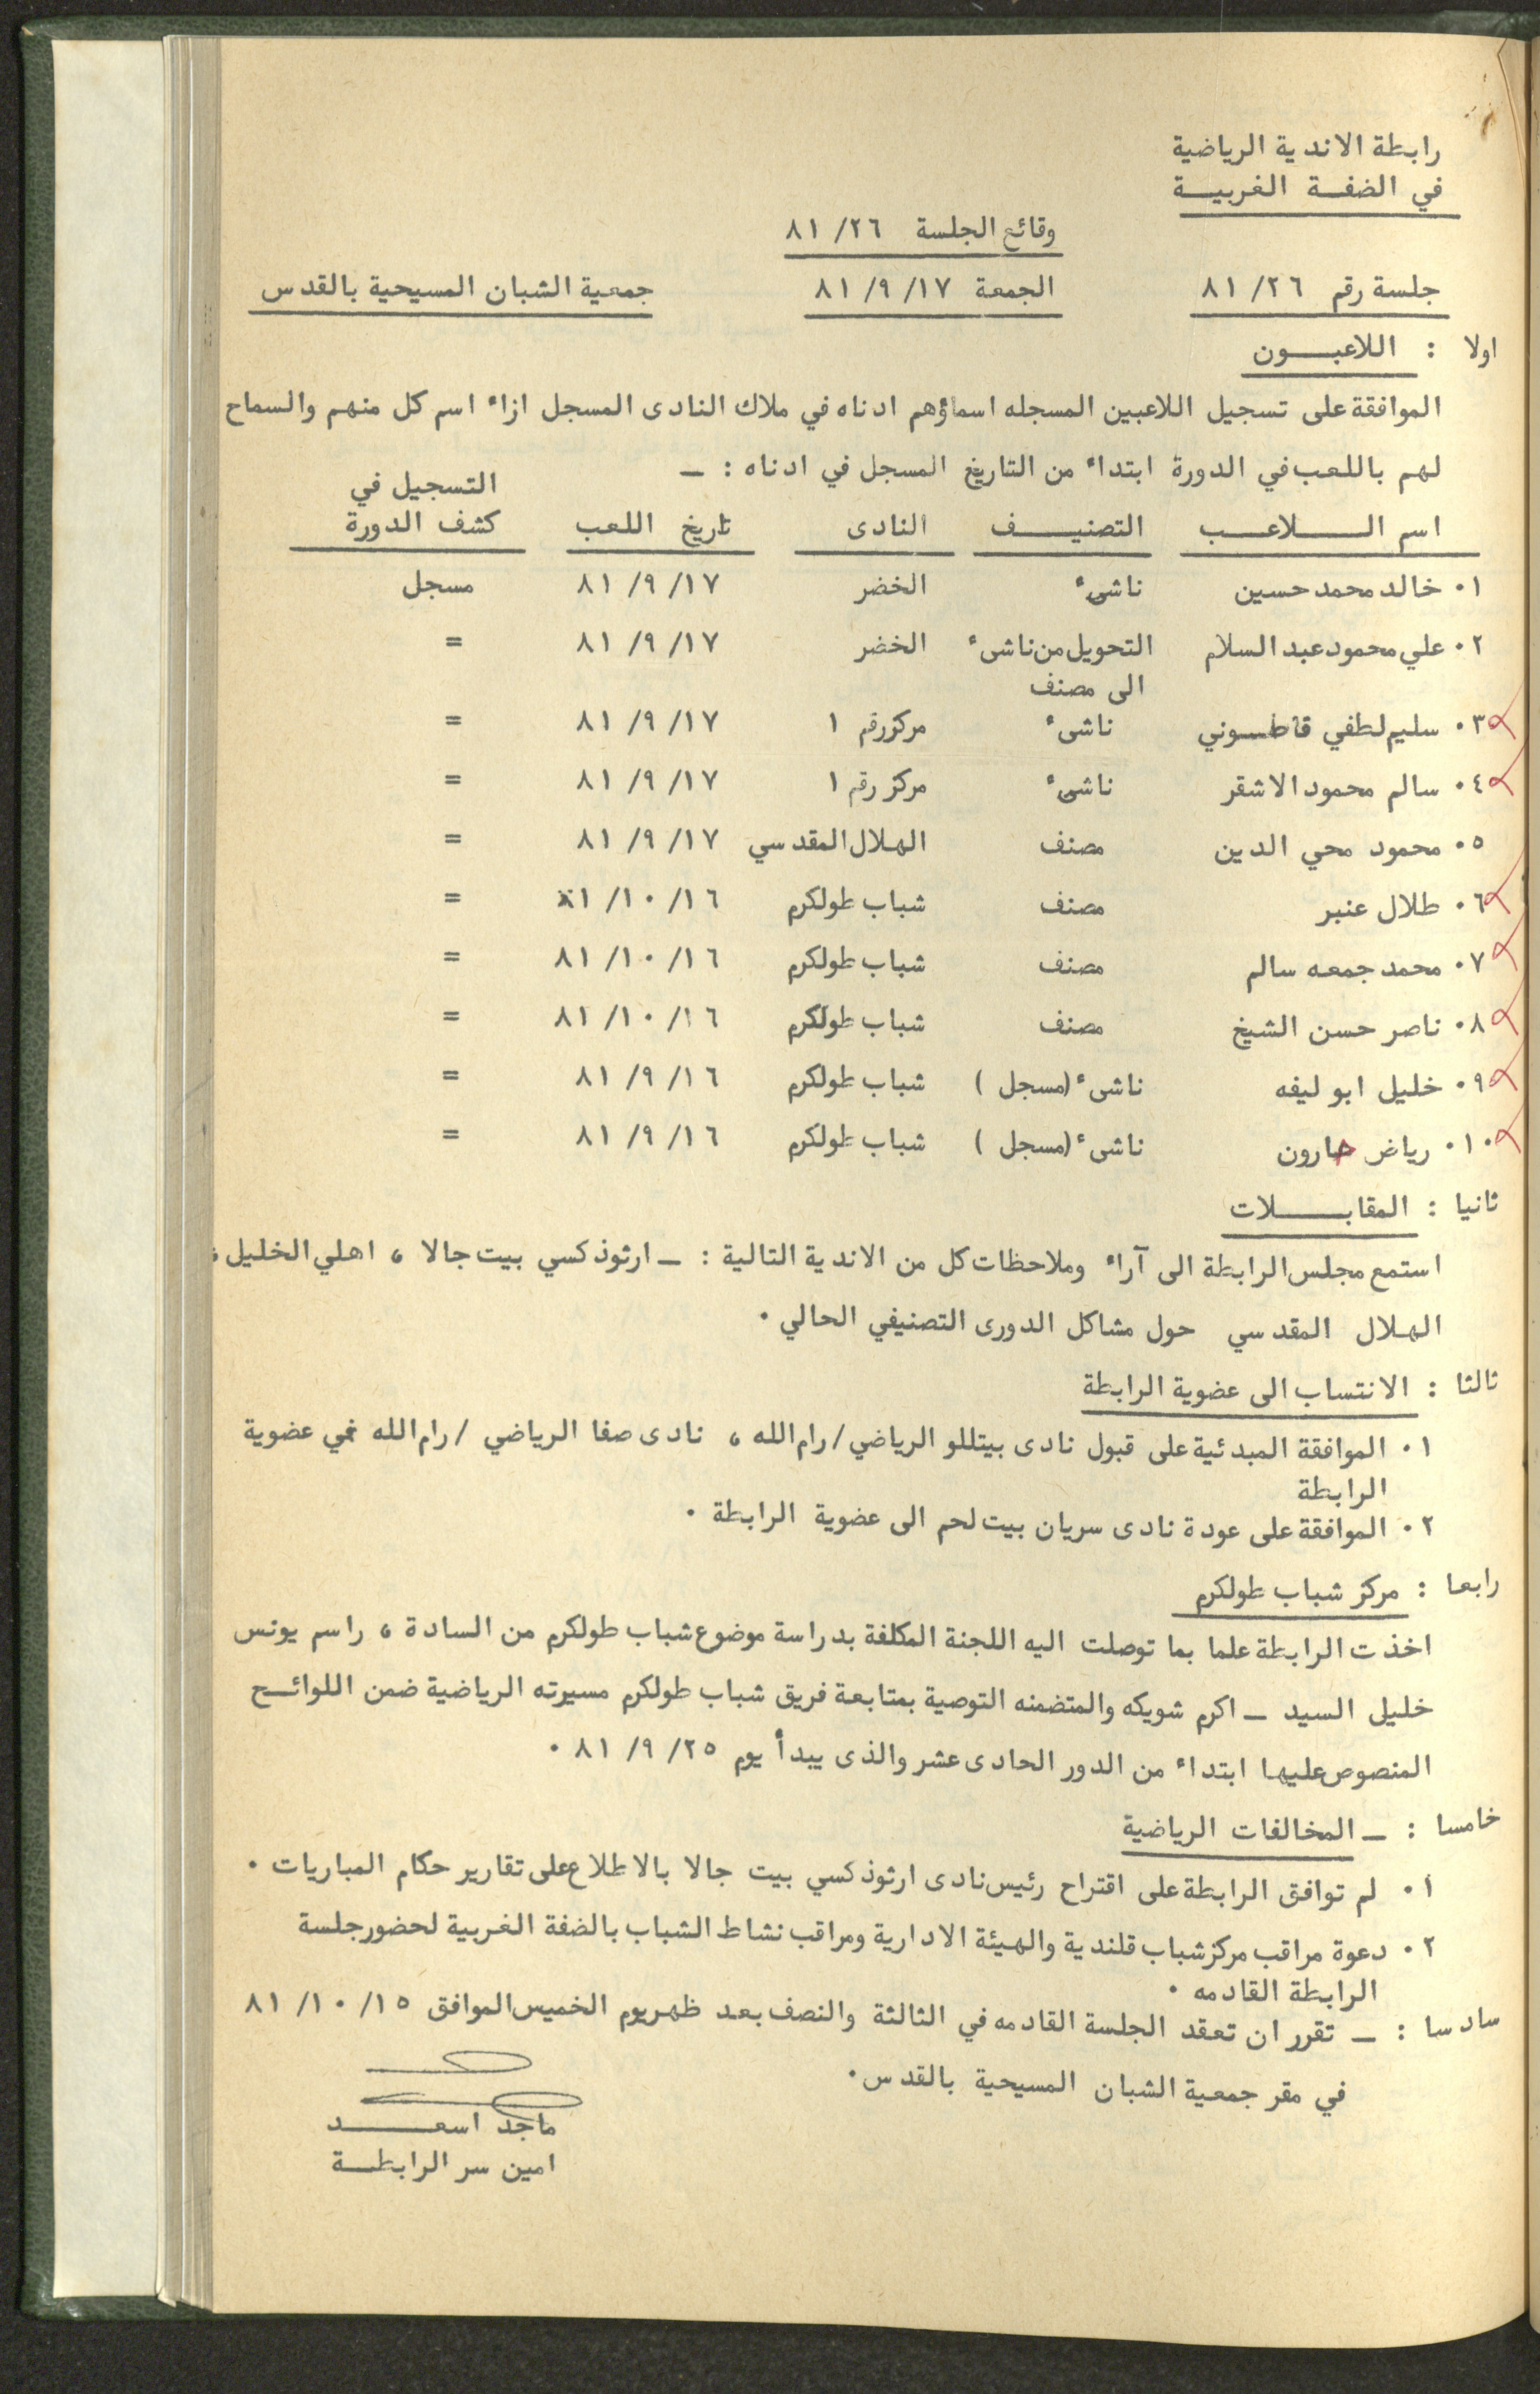 رابطة الاندية الرياضية
في الضفة الغربية
وقائع الجلسة ٨١/٢٦
جلسة رقم ٨١/٢٦ الجمعة ٨١/٩/١٧ جمعية الشبان المسيحية بالقدس
اولا : اللاعبون
الموافقة على تسجيل اللاعبين المسجله اسماؤهم ادناه في ملاك النادى المسجل ازاء اسم كل منهم والسماح
لهم باللعب في الدورة ابتداء من التاريخ المسجل في ادناه : ـ
اسم اللاعب التصنيف النادى تاريخ اللعب التسجيل في كشف الدورة
٠١ خالد محمد حسين ناشىء الخضر ٨١/٩/١٧ مسجل
٠٢ علي محمود عبد السلام التحويل من ناشىء الخضر ٨١/٩/١٧ =
الى مصنف
٠٣ سليم لطفي قاطوني ناشىء مركز رقم ١ ٨١/٩/١٧ =
٠٤ سالم محمود الاشقر ناشىء مركز رقم ١ ٨١/٩/١٧ =
٠٥ محمود محي الدين مصنف الهلال المقدسي ٨١/٩/١٧ =
٠٦ طلال عنبر مصنف شباب طولكرم ٨١/١٠/١٦ =
٠٧ محمد جمعه سالم مصنف شباب طولكرم ٨١/١٠/١٦ =
٠٨ ناصر حسن الشيخ مصنف شباب طولكرم ٨١/١٠/١٦ =
٠٩ خليل ابو ليفه ناشىء (مسجل ) شباب طولكرم ٨١/٩/١٦ =
٠١٠ رياض هارون ناشىء (مسجل ) شباب طولكرم ٨١/٩/١٦ =
ثانيا : المقابلات
استمع مجلس الرابطة الى آراء وملاحظات كل من الاندية التالية : ـ ارثوذكسي بيت جالا ، اهلي الخليل ،
الهلال المقدسي حول مشاكل الدورى التصنيفي الحالي ٠
ثالثا : الانتساب الى عضوية الرابطة
٠١ الموافقة المبدئية على قبول نادى بيتللو الرياضي / رام الله ، نادى صفا الرياضي / رام الله في عضوية
الرابطة
٠٢ الموافقة على عودة نادى سريان بيت لحم الى عضوية الرابطة ٠
رابعا : مركز شباب طولكرم
اخذت الرابطة علما بما توصلت اليه اللجنة المكلفة بدراسة موضوع شباب طولكرم من السادة ، راسم يونس
خليل السيد ـ اكرم شويكه والمتضمنه التوصية بمتابعة فريق شباب طولكرم مسيرته الرياضية ضمن اللوائح
المنصوص عليها ابتداء من الدور الحادى عشر والذى يبدأ يوم ٨١/٩/٢٥ ٠
خامسا : ـ المخالفات الرياضية
٠١ لم توافق الرابطة على اقتراح رئيس نادى ارثوذكسي بيت جالا بالاطلاع على تقارير حكام المباريات ٠
٠٢ دعوة مراقب مركز شباب قلندية والهيئة الادارية ومراقب نشاط الشباب بالضفة الغربية لحضور جلسة
الرابطة القادمه ٠
سادسا : ـ تقرر ان تعقد الجلسة القادمه في الثالثة والنصف بعد ظهر يوم الخميس الموافق ٨١/١٠/١٥
في مقر جمعية الشبان المسيحية بالقدس ٠
ماجد اسعد
امين سر الرابطة